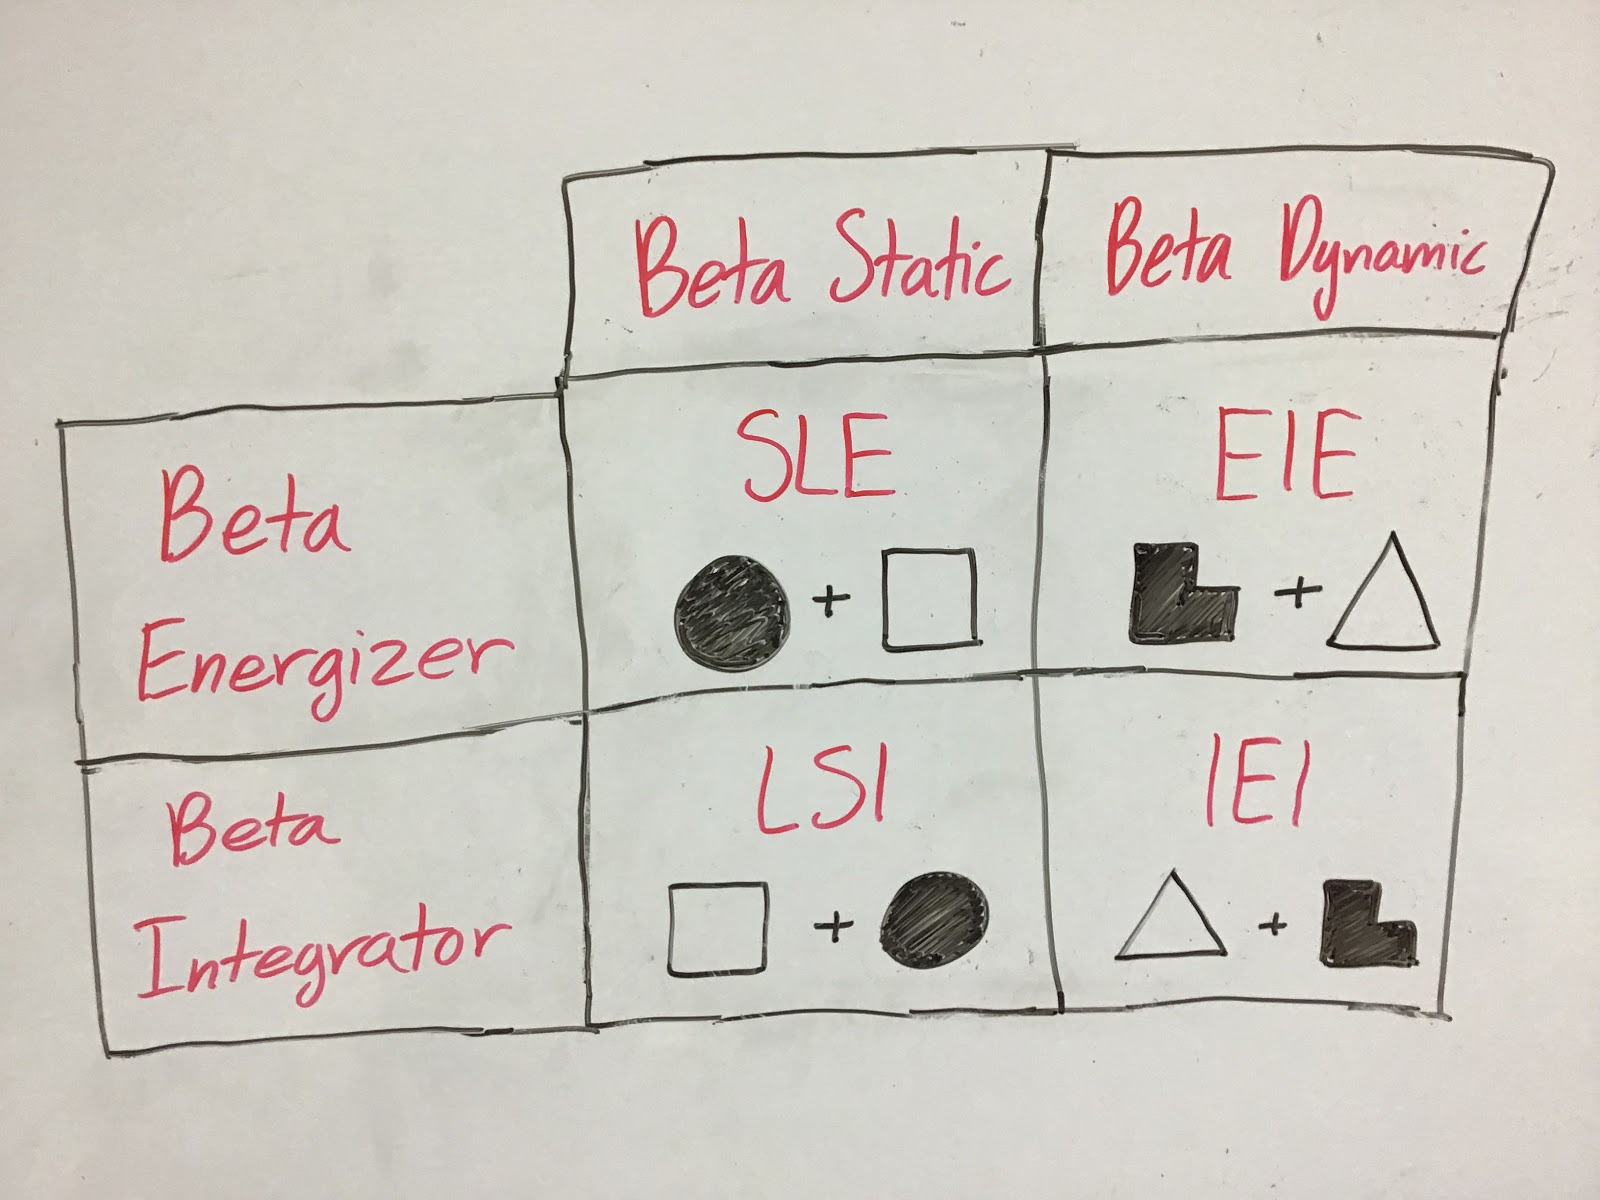 Beta Static
Beta Dynamic
Beta
Energizer
SLE
EIE
+
+
Beta
Integrator
LSI
IEI
+
+